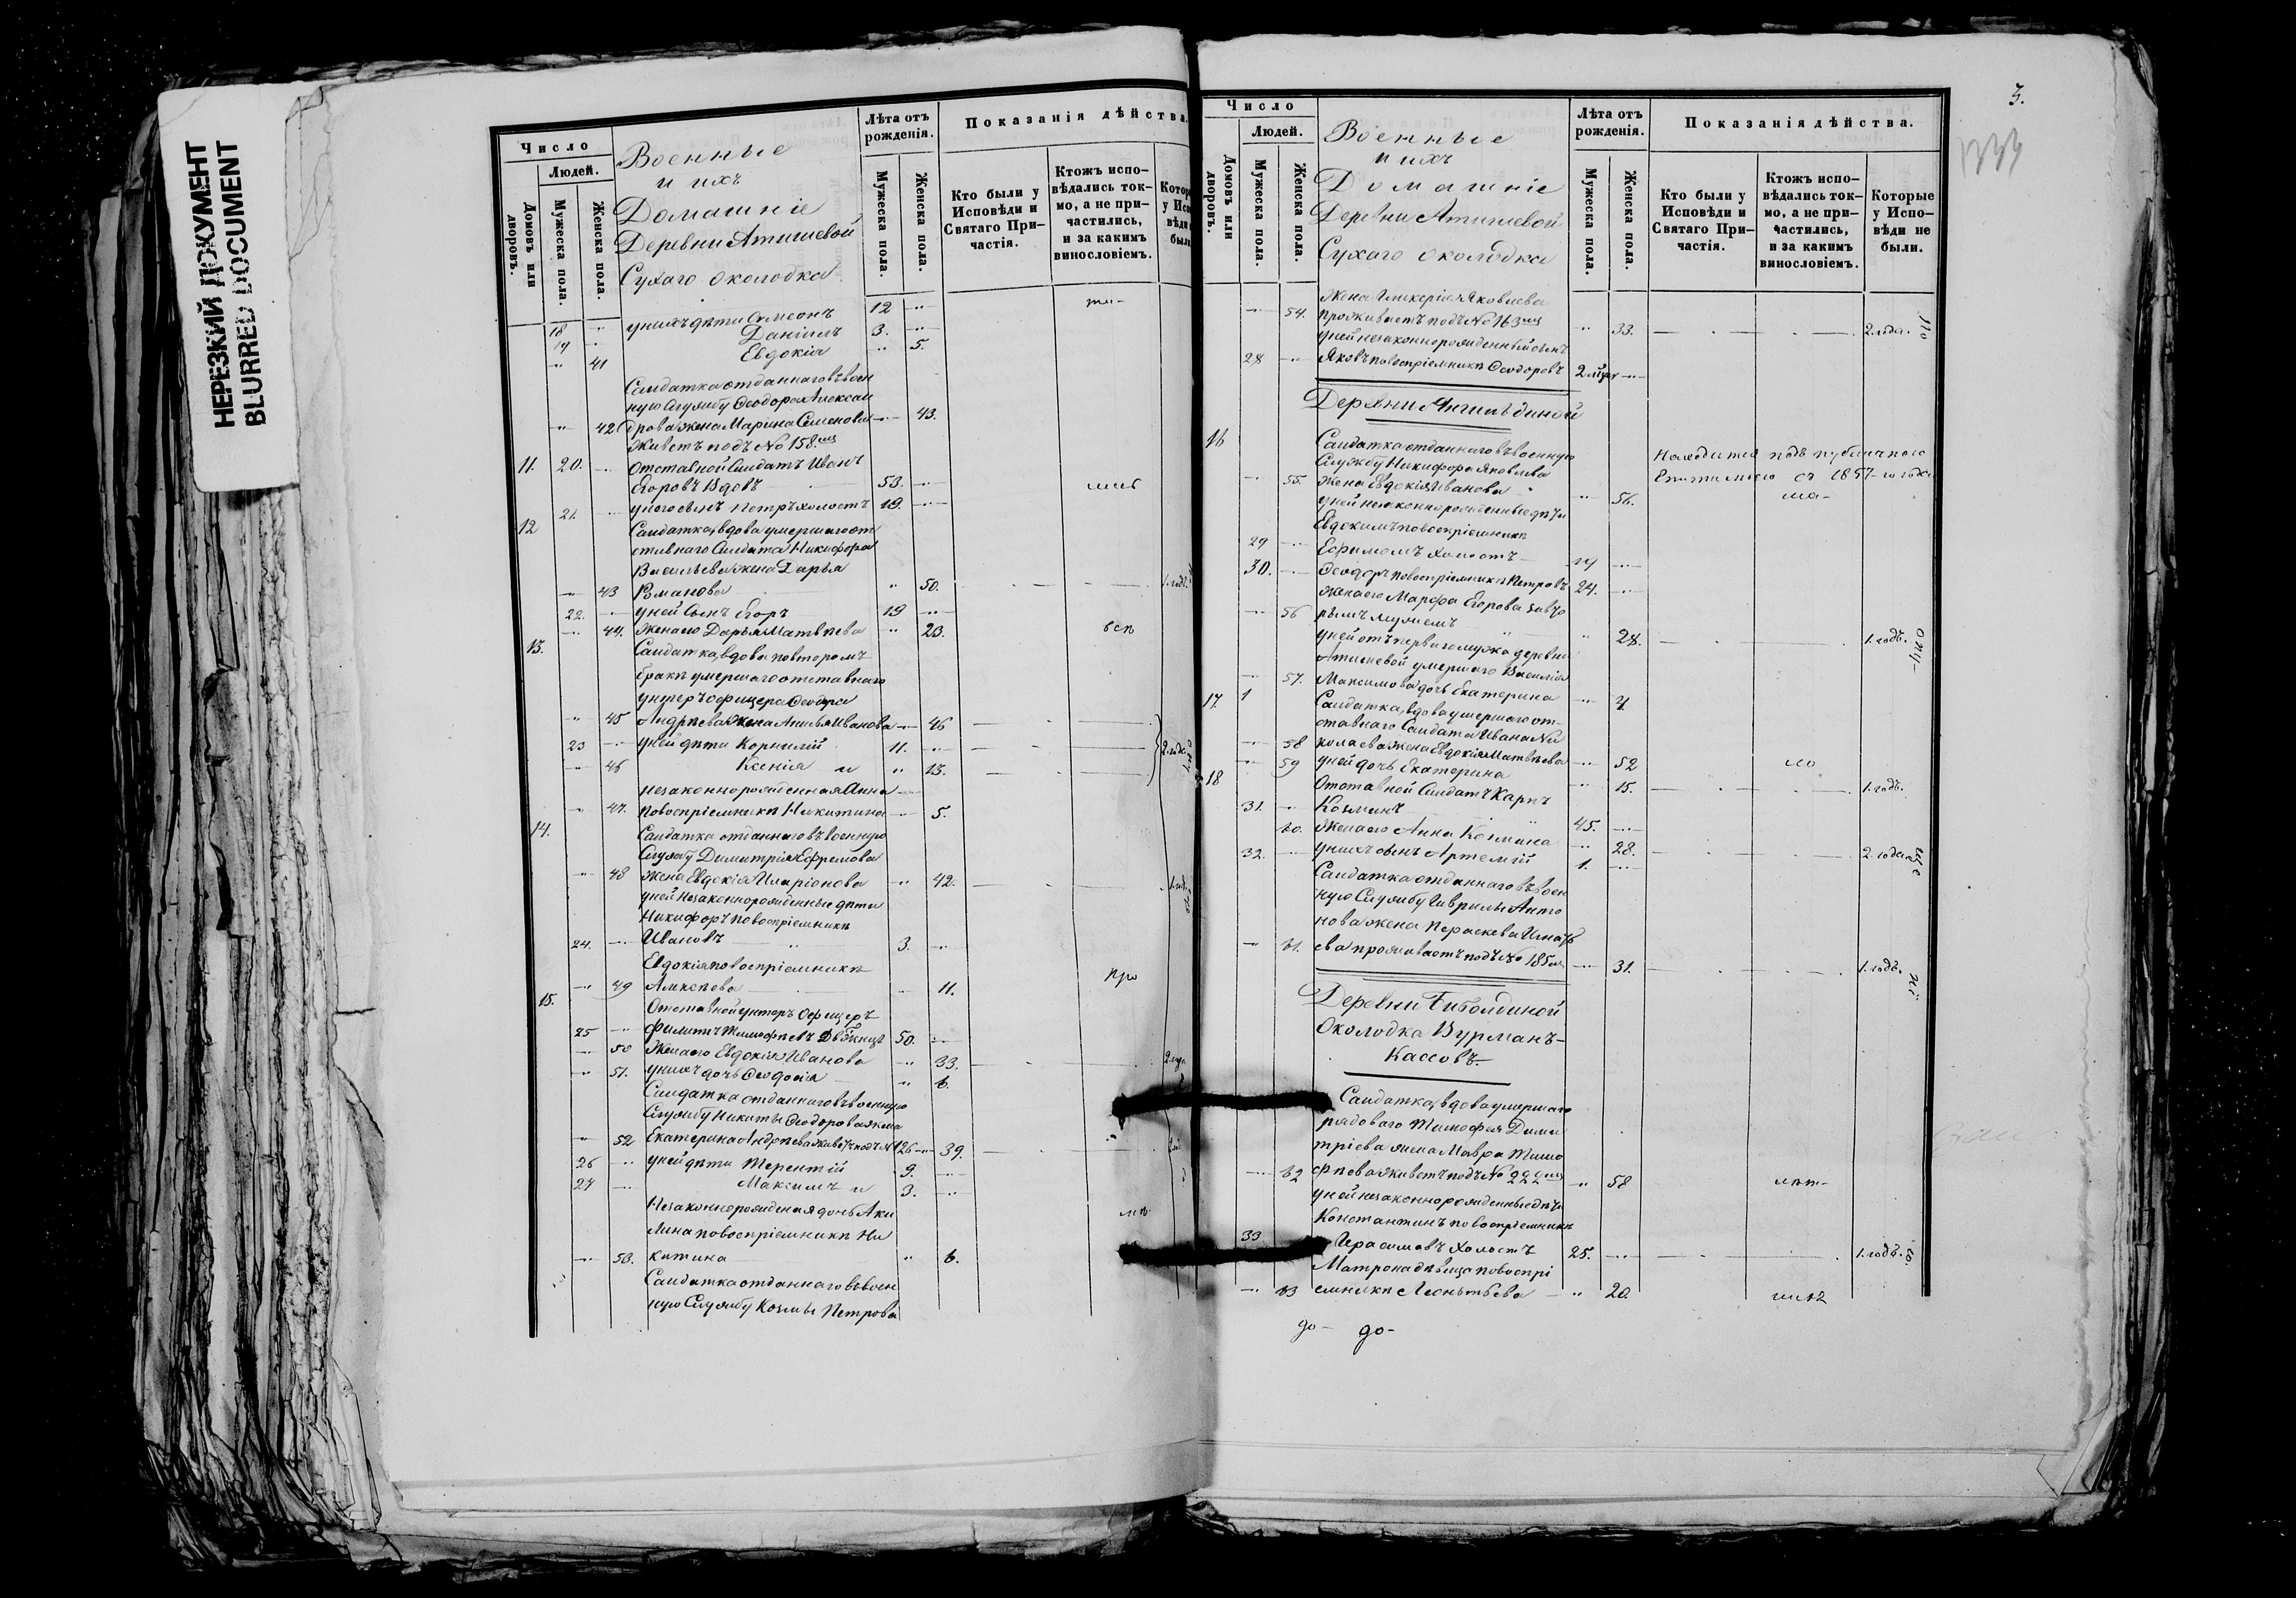 НЕРЕЗКИЙ ДОКУМЕНТ
BLURRED DOCUMENT
Число
Людей.
Домовъ или дворовъ.
Мужеска пола.
Женска пола.
Военные
и ихъ
Домашніе
Деревни Атишевой
Сухаго околодка
Лѣта отъ рожденія.
Мужеска пола.
Женска пола.
Показанія дѣйства.
Кто были у Исповѣди и Святаго Причастія.
Ктожъ исповѣдались токмо, а не причастились, и за какимъ винословіемъ.
18 унихъ дѣти Самсонъ 12
19 Даніилъ 3.
41 Евдокія 5.
Салдатка отданнаго въ воен
ную Службу Ѳеодора Алексан
42 дрова жена Марина Семенова 43.
живетъ подъ № 158.мъ
11. 20. Отставной Салдатъ Иванъ
Егоровъ Вдовъ 53.
21. унего сынъ Петръ холостъ 19.
12 Салдатка, вдова умершаго от
ставнаго Салдата Никифора
Васильева жена Дарья
43 Романова 50. 1. годъ.
22. уней Сынъ Егоръ 19
44. Жена его Дарья Матвѣева 23.
13. Салдатка, вдова повторомъ
бракѣ умершаго отставнаго
унтеръ офицера Ѳеодора
45 Андрѣева жена Анисья Иванова 46
23 уней дѣти Корнилій 11.
46 Ксенія и 13.
незаконнорожденная Анна
47. повоспріемникѣ Никитина 5.
14. Салдатка отданнаго въ военную
Службу Димитрія Ефремова
48 жена Евдокія Иларіонова 42.
уней Незаконнорожденные дѣти
Никифоръ повоспріемникѣ
24. Ивановъ 3.
Евдокія повоспріемникѣ
49 Алексѣева 11.
15. Отставной унтеръ Офицеръ
25 Филиппъ Тимофѣевъ 50.
50 Жена его Евдокія Иванова 33.
51. унихъ дочь Ѳеодосія 6.
Салдатка отданнаго въ военную
Службу Никиты Ѳеодорова жена
52 Екатерина Андрѣева живетъ подъ № 126 39.
26 уней дѣти Терентій 9.
27 Максимъ и 3.
Незаконнорожденая дочь Аки
лина повоспріемникѣ Ни
53. китина 6.
Салдатка отданнаго въ воен
ную Службу Козмы Петрова
3.
Число
Людей.
Домовъ или дворовъ.
Мужеска пола.
Женска пола.
Военные
и ихъ
Домашніе
Деревни Атишевой
Сухаго околодка
Лѣта отъ рожденія.
Мужеска пола.
Женска пола.
Показанія дѣйства.
Кто были у Исповѣди и Святаго Причастія.
Ктожъ исповѣдались токмо, а не причастились, и за какимъ винословіемъ.
Которые у Исповѣди не были.
Жена Гликерія Яковлева
54. проживаетъ подъ № 163мъ 33. 2. года.
уней незаконнорожденный сынъ
28 Яковъ повоспріемникѣ Ѳеодоровъ
16 Салдатка отданнаго въ военную
Службу Никифора Яковлева
55. жена Евдокія Иванова 56.
Находится подъ публичною
Епитиміею съ 1857-го года
уней незаконнорожденные дѣти
Евдокимъ повоспріемникѣ
29 Ефимовъ холостъ 19
30. Ѳеодоръ повоспріемникѣ Петровъ 24.
Жена его Марфа Егорова
56 28. 1. годъ.
уней отъ перваго мужа деревни
Атишевой умершаго Василія
57. Максимова дочь Екатерина 4.
17. Салдатка, вдова умершаго от-
ставнаго Салдата Ивана Ни
58 колаева жена Евдокія Матвѣева 52
59 уней дочь Екатерина 15. 1. годъ.
18 Отставной Салдатъ Карпъ
31. Козминъ 45.
60. Жена его Анна Козмина 28. 2. года
32. унихъ сынъ Артемій 1.
Салдатка отданнаго въ воен
ную Службу Гаврилы Анто
нова жена Параскева Игнать
61. ева проживаетъ подъ № 185мъ 31. 1. годъ.
Околодка Вурманъ-
Кассовъ.
Салдатка, вдова умершаго
рядоваго Тимофея Дими
тріева жена Мавра Тимо
62 фѣева живетъ подъ № 222мъ 58
уней незаконнорожденные дѣти
Константинъ повоспріемникѣ
33 Герасимовъ холостъ 25. 1. годъ.
Матрона дѣвица повоспрі
63 емникѣ Леонтьева 20.
до- до-